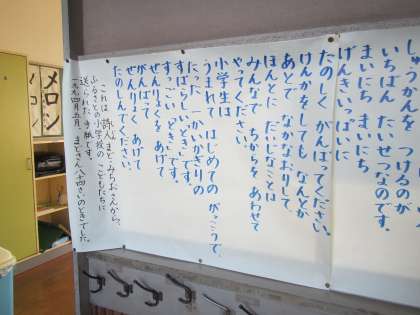 しゅうかんを つけるのが
いちばん たいせつなのです。
まいにち まいにち
げんきいっぱいに
たのしく がんばってください。
けんかをしても なんとか
あとで なかなおりして、
ほんとに だいじなこと
みんなで ちからを あわせて
やってください。
小学生は
うまれて はじめての がっこうで、
たった かいかぎりの
すばらしい「とき」です。
すっごい「とき」です。
ぜんりょくを あげて
がんばって
ぜんりょく あげて
たのしんでください。
これは 詩人まど・みちおさんから、
ふるさとの小学校の こどもたちに
送られた 手紙です。
一九九四年五月、まどさん八十四さいのときでした。
メロン